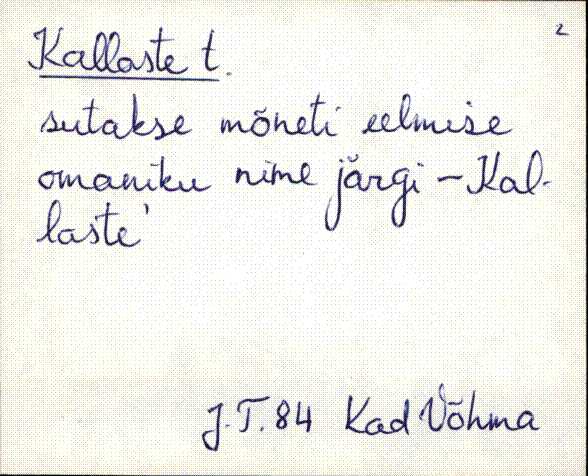 2
Kallaste t.
sutakse mõneti eelmise
omaniku nime järgi – Kal-
laste'
J.T.84 Kad Võhma